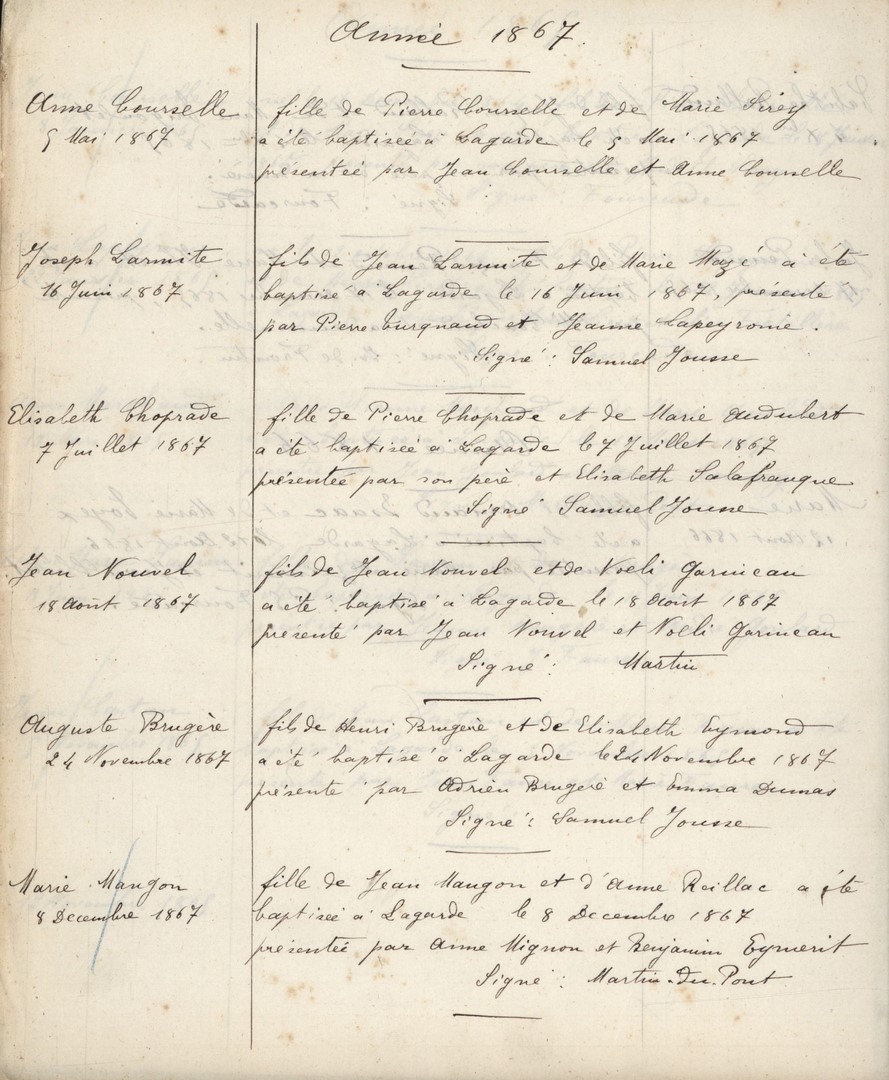 Année 1867
Anne Courselle
5 Mai 1867
fille de Pierre Courselle et de Marie Sirey
a été baptisée à Lagarde le 5 Mai 1867
présentée par Jean Courselle et Anne Courselle
Joseph Larmite
16 Juin 1867
fils de Jean Larmite et de Marie Mazé a été
baptisé à Lagarde le 16 Juin 1867, présenté
par Pierre Turgnaud et Jeanne Lapeyronie.
Signé : Samuel Jousse
Elisabeth Choprade
7 Juillet 1867
fille de Pierre Choprade et de Marie Audubert
a été baptisée à Lagarde le 7 Juillet 1867
présentée par son père et Elisabeth Salafranque
Signé Samuel Jousse
Jean Nouvel
18 Août 1867
fils de Jean Nouvel et de Noéli Garineau
a été baptisé à Lagarde le 18 Août 1867
présenté par Jean Nouvel et Noéli Garineau
Signé : Martin
Auguste Brugère
24 Novembre 1867
fils de Henri Brugère et de Elisabeth Eymond
a été baptisé à Lagarde le 24 Novembre 1867
présenté par Adrien Brugère et Emma Dumas
Signé : Samuel Jousse
Marie Mangon
8 Décembre 1867
fille de Jean Mangon et d'Anne Reillac a été
baptisée à Lagarde le 8 Decembre 1867
présentée par Anne Mignon et Benjamin Eymerit
Signé : Martin-du-Pont